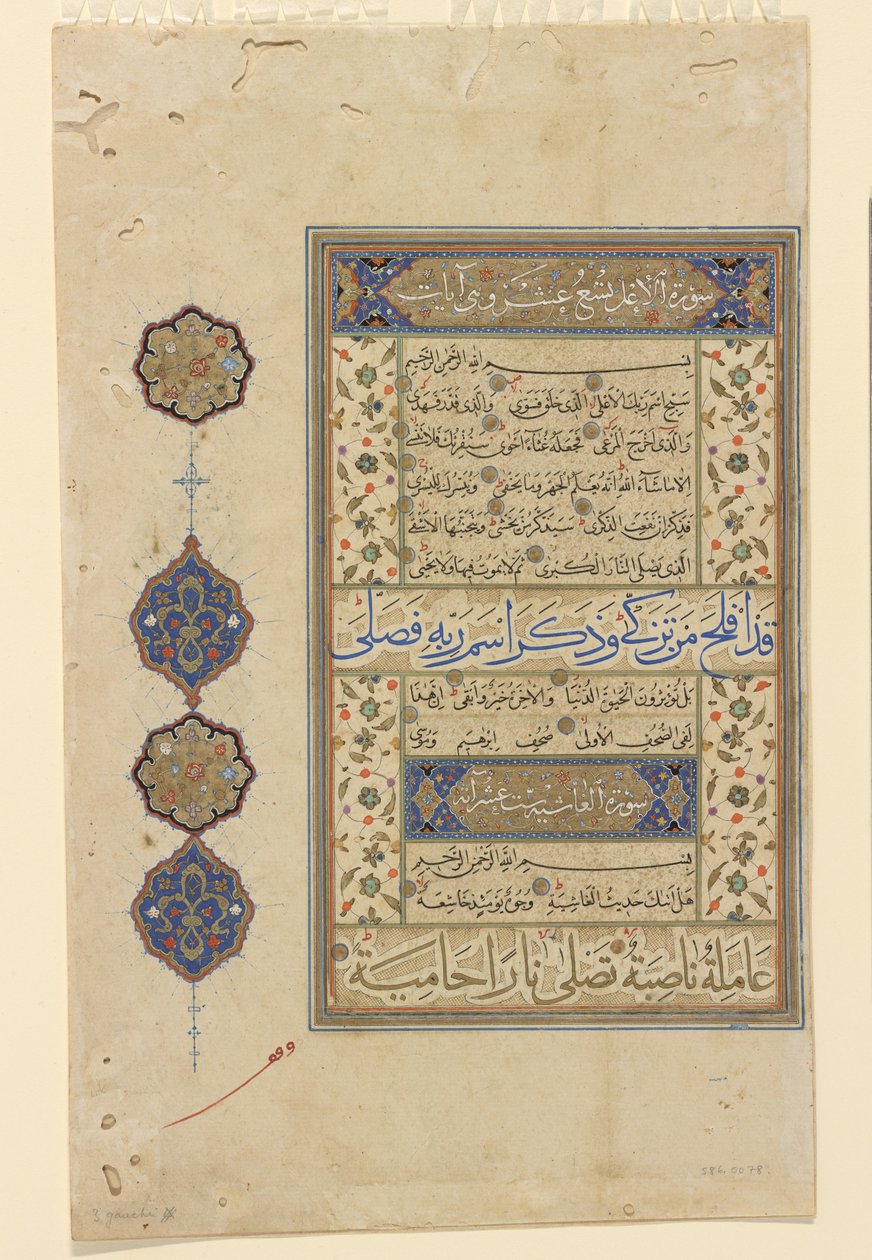 سورة الأعلى تسع عشر وهي آيات
بسم الله الرحمن الرحيم
سبح اسم ربك الاعلى الذى خلق فسوى والذى قدر فهدى
والذى اخرج المرعى فجعله غثاء احوى سنقرئك فلا تنسى
الا ما شاء الله انه يعلم الجهر وما يخفى ونيسرك لليسرى
فذكر ان نفعت الذكرى سيذكر من يخشى ويتجنبها الاشقى
الذى يصلى النار الكبرى ثم لا يموت فيها ولا يحيى
قد افلح من تزكى وذكر اسم ربه فصلى
بل تؤثرون الحيوة الدنيا والاخرة خير وابقى ان هذا
لفى الصحف الاولى صحف ابرهيم وموسى
سورة الغاشية ست عشر آية
بسم الله الرحمن الرحيم
هل اتيك حديث الغاشية وجوه يومئذ خاشعة
عاملة ناصبة تصلى نارا حامية
وقف
586.0078